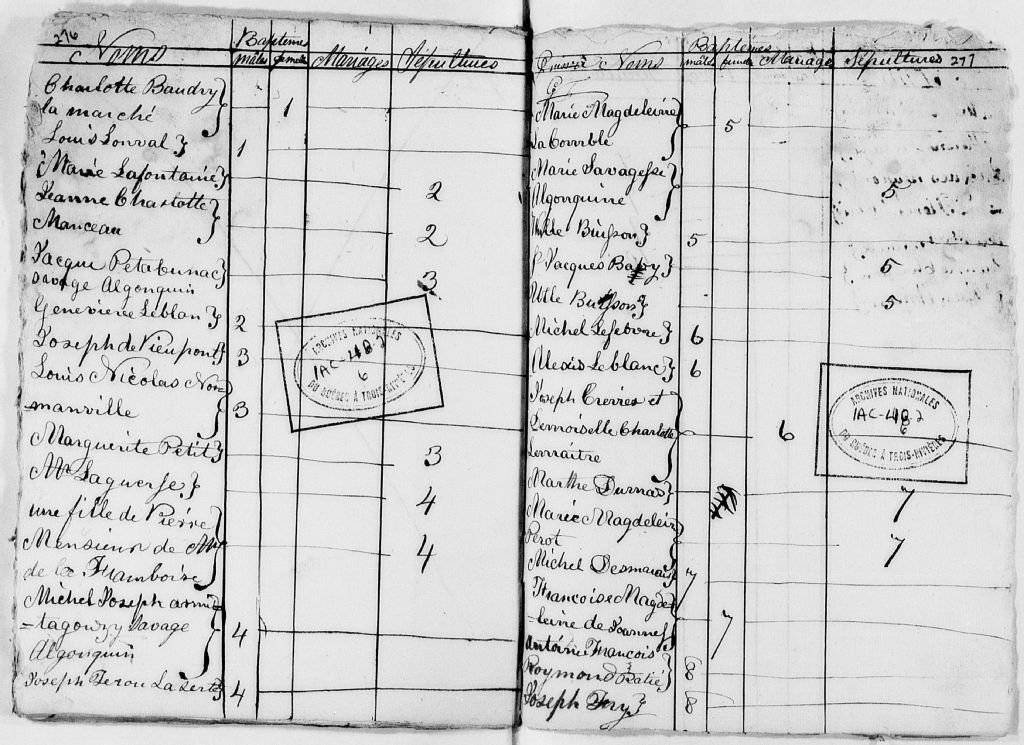 276
Noms Baptemes Mariages Sépultures
mâles femelles
Charlotte Baudry
la marché 1
Louis Lonval 1
Marie Lafontaine 2
Jeanne Charlotte
Manceau 2
Jacque Petabunac
savage Algonquin 3
Genevieve Leblan 2
Joseph de Vieupont 3
Louis Nicolas Nor
=manville 3
Marguerite Petit 3
Mr Laguerse 4
une fille de Pierre
Mensieur de Mr 4
de la Framboise
Michel Joseph
=tagowzy Savage
Algonquin 4
Joseph Terou La Serte 4
ARCHIVES NATIONALES
1AC-48-2
6
DU QUÉBEC À TROIS-RIVIÈRES
277
Noms Baptemes Mariages Sépultures
mâles
Marie Magdeleine
La Corrible 5
Marie Savagesse
Algonquine 5
Buisson 5
Jacques 5
5
Michel Lefebvre 6
Alexis Leblanc 6
Joseph Crevier et
Demoiselle Charlotte 6
Lemaitre
Marthe Durnas 7
Marie Magdelein
Perot 7
Michel Desmarais 7
Francoise Magde
=leine de Joannes 7
Antoine Francois
Raymond Ratié 8
Joseph 8
ARCHIVES NATIONALES
1AC-48-2
6
DU QUÉBEC À TROIS-RIVIÈRES